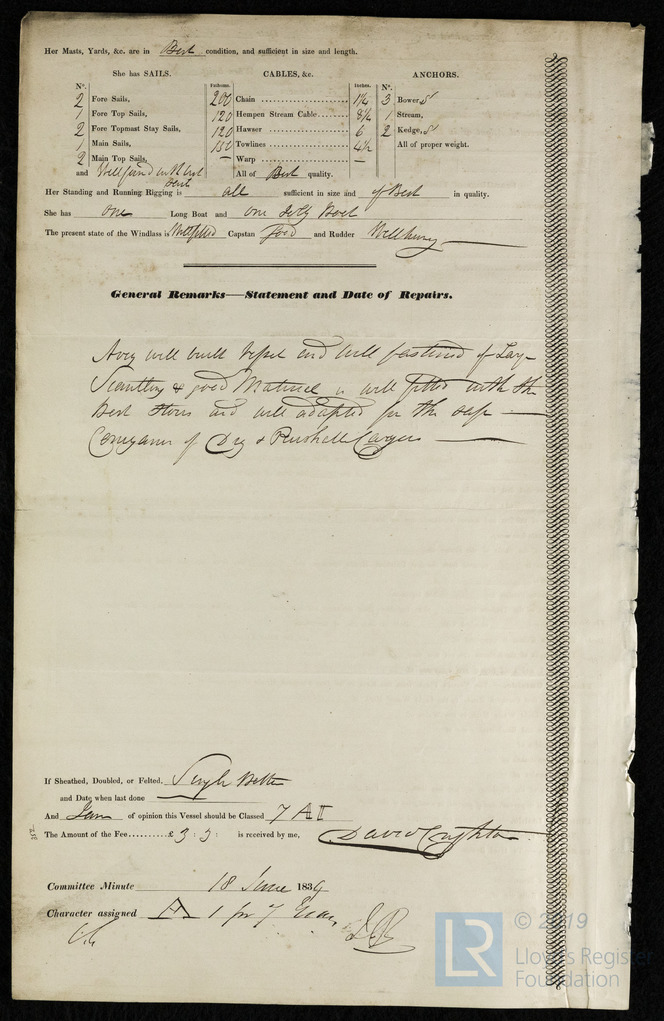 Her Masts, Yards, &c. are in Best condition, and sufficient in size and length.
She has SAILS. CABLES, &c. ANCHORS.
N°. Fathoms. Inches. N°.
2 Fore Sails, 200 Chain 1¼ 3 Bower
1 Fore Top Sails, 120 Hempen Stream Cable 8½ 1 Stream,
2 Fore Topmast Stay Sails, 120 Hawser 6 2 Kedge,
1 Main Sails, 130 Towlines 4½ All of proper weight.
2 Main Top Sails, — Warp —
and Well found with best All of Best quality.
Her Standing and Running Rigging is all sufficient in size and of Best in quality.
She has one Long Boat and one Jolly Boat
The present state of the Windlass is Well fitted Capstan Good and Rudder Well hung
General Remarks—Statement and Date of Repairs.
A very well built Vessel and well fastened of Large
Scantling & good Material is well fitted with the
Best Stores and well adapted for the safe
Conveyance of Dry & Perishable Cargoes
If Sheathed, Doubled, or Felted, Single Bottom
and Date when last done
And I am of opinion this Vessel should be Classed 7 A I
The Amount of the Fee..........£ 3 : 3 : is received by me, David Crighton
Committee Minute 18 June 1839
Character assigned A 1 for 7 Years
© 2019
LR
Lloyd's Register
Foundation